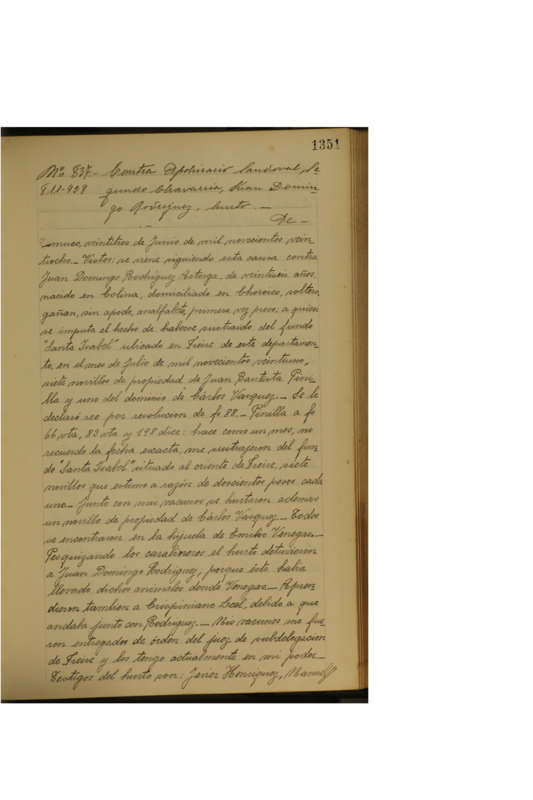 1351
Nº 837.- Contra Apolinario Sandoval, Se
gundo Chavarria, Juan Domin-
go Rodriguez, hurto.-
Te-
muco, veintitres de Junio de mil novecientos vein
tiocho.- Vistos: se viene siguiendo esta causa contra
Juan Domingo Rodriguez Astorga, de veintiseis años,
nacido en Colina, domiciliado en Choroico, soltero,
gañan, sin apodo, analfabeto, primera vez preso; a quien
se imputa el hecho de haberse sustraido del fundo
"Santa Isabel" ubicado en Freire de este departamen
to, en el mes de Julio de mil novecientos veintiuno,
siete novillos de propiedad de Juan Bautista Pini
lla y uno del dominio de Cárlos Vasquez.- Se le
declaró reo por resolucion de fs 88.- Pinilla a fs
66 vta, 83 vta y 198 dice: hace como un mes, no
recuerdo la fecha exacta, me sustrajeron del fun
do "Santa Isabel" situado al oriente de Freire, siete
novillos que estimo a razón de doscientos pesos cada
uno.- Junto con mis vacunos se hurtaron ademas
un novillo de propiedad de Cárlos Vasquez.- Todos
se encontraron en la hijuela de Emilio Venegas.-
Pesquizando los carabineros el hurto detuvieron
a Juan Domingo Rodriguez, porque éste habia
llevado dichos animales donde Venegas.- Apren
dieron tambien a Crispiniano Leal, debido a que
andaba junto con Rodriguez.- Mis vacunos me fue
ron entregados de órden del juez de subdelegacion
de Freire y los tengo actualmente en mi poder.-
Testigos del hurto son: Javier Henriquez, Manuel